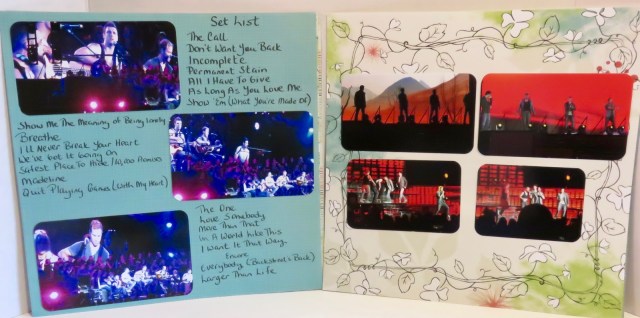 Set List
The Call
Don't Want You Back
Incomplete
Permanent Stain
All I Have To Give
As Long As You Love Me
Show 'Em (What You're Made Of)
Show Me The Meaning of Being Lonely
Breathe
I'll Never Break Your Heart
We've Got It Going On
Safest Place To Hide / 10,000 Promises
Madeleine
Quit Playing Games (With My Heart)
The One
Love Somebody
More Than That
In A World Like This
I Want It That Way
Encore
Everybody (Backstreet's Back)
Larger Than Life